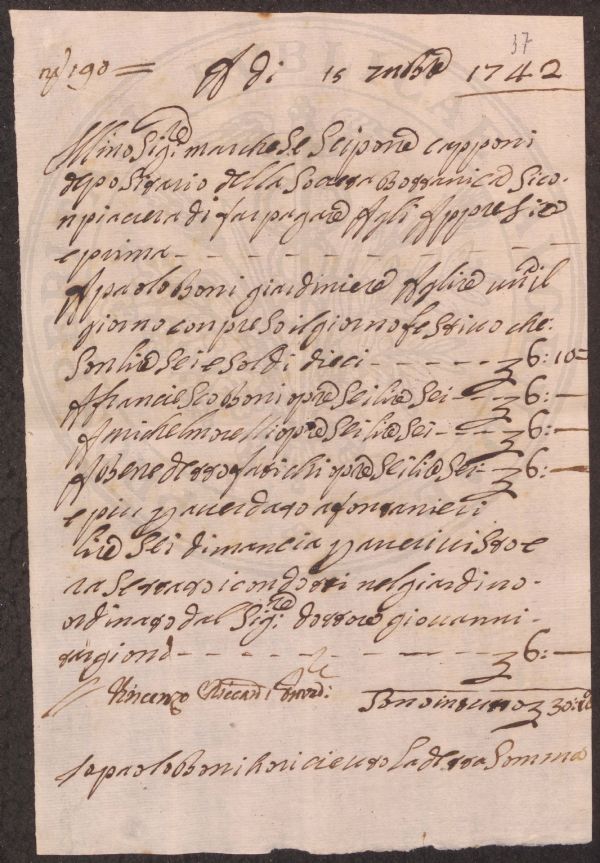 37
nº 190 = A di 15 9mbre 1742
Illmo Sigre marchese Scipone capponi
depositario della Soceta Bottanica Si co-
npiacera di far pagare Agli Appresso
e prima
A paolo Boni giardiniere A lire una il
giorno conpreso il giorno festivo che
Son lire Sei e Soldi dieci 6: 10=
A francesco Boni opre Sei lire Sei 6: —
A michel morelli opre Sei lire Sei 6: —
A benedetto fatichi opre Sei lire Sei 6: —
e piu p aver dato a fontanieri
lire Sei di mancia p aver visto e
ra Settato i condotti nel giardino-
ordinato dal Sigre dottore giovanni-
targioni 6: —
Vincenzo Riccardi
Sono in tutto 30: 10
Io paolo Boni ho riceuto La detta Somma